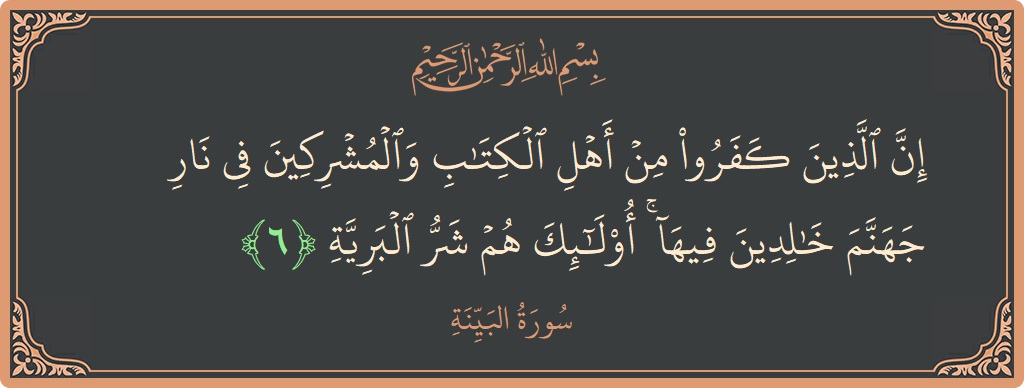 بِسْمِ اللَّهِ الرَّحْمَٰنِ الرَّحِيمِ
إِنَّ ٱلَّذِينَ كَفَرُوا۟ مِنْ أَهْلِ ٱلْكِتَٰبِ وَٱلْمُشْرِكِينَ فِى نَارِ
جَهَنَّمَ خَٰلِدِينَ فِيهَآ ۚ أُو۟لَٰٓئِكَ هُمْ شَرُّ ٱلْبَرِيَّةِ ﴿٦﴾
سُورَةُ البَيِّنَةِ